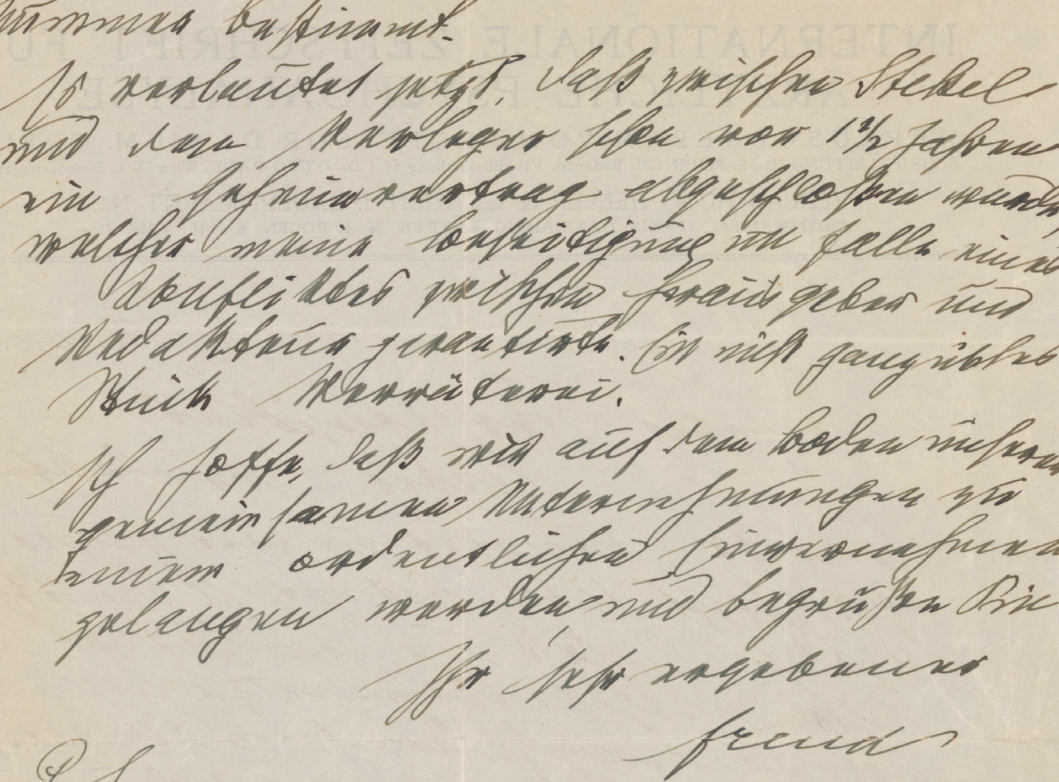 nummer bestimmt.
Es verlautet jetzt, daß zwischen Stekel
und dem Verleger schon vor 1½ Jahren
ein Geheimvertrag abgeschloßen wurde
welcher meine Beseitigung im Falle eines
Konfliktes zwischen Herausgeber und
Redakteur garantirte. Ein nicht ganz übles
Stück Verräterei.
Ich hoffe, daß wir auf dem Boden unserer
gemeinsamen Unternehmungen zu
einem ordentlichen Einvernehmen
gelangen werden, und begrüße Sie
Ihr sehr ergebener
Freud